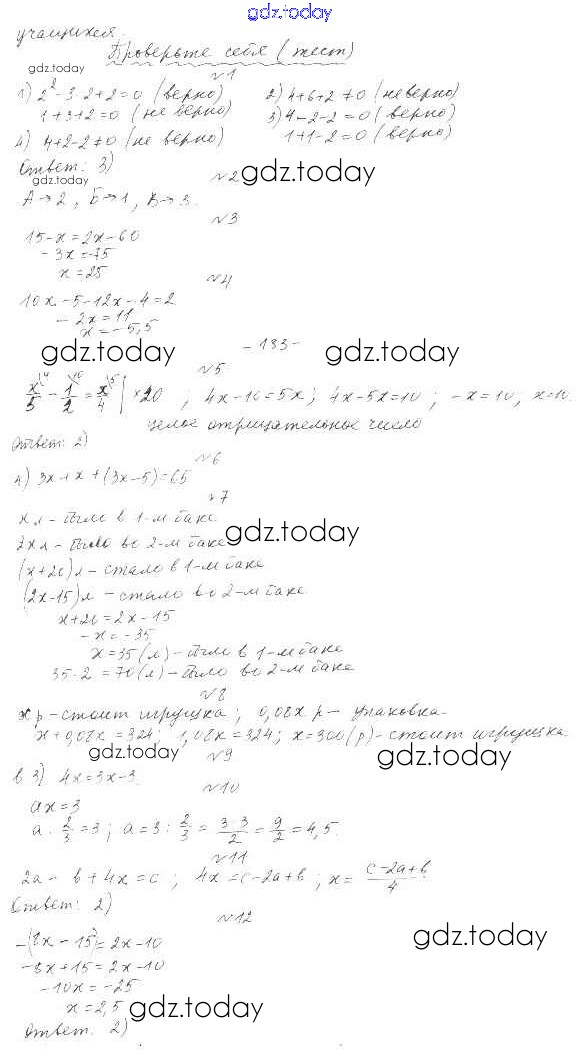 gdz.today
учащихся.
Проверьте себя (тест)
gdz.today
№1
1) 2² - 3·2 + 2 = 0 (верно) 2) 4+6+2 ≠ 0 (неверно)
1+3+2=0 (не верно) 3) 4-2-2=0 (верно)
4) 4+2-2≠0 (не верно) 1+1-2=0 (верно)
Ответ: 3)
gdz.today
№2 gdz.today
А→2, Б→1, В→3.
№3
15-x=2x-60
-3x=-75
x=25
№4
10x-5-12x-4=2
-2x=11
x=-5,5
gdz.today -133- gdz.today
№5
x/5 - 1/2 = x/4 | ×20 ; 4x-10=5x; 4x-5x=10; -x=10; x=10.
целое отрицательное число
Ответ: 2)
№6
4) 3x+x+(3x-5)=65
№7
x л - было в 1-м баке
gdz.today
2x л - было во 2-м баке
(x+20) л - стало в 1-м баке
(2x-15) л - стало во 2-м баке
x+20=2x-15
-x=-35
x=35 (л) - было в 1-м баке
35·2=70 (л) - было во 2-м баке
№8
x р - стоит игрушка; 0,08x р - упаковка
x+0,08x=324; 1,08x=324; x=300 (р) - стоит игрушка
gdz.today №9 gdz.today
в 3) 4x=3x-3.
№10
ax=3
a·2/3=3; a=3:2/3=3·3/2=9/2=4,5.
№11
2a-b+4x=c; 4x=c-2a+b; x=(c-2a+b)/4
Ответ: 2)
№12
gdz.today
-(8x-15)=2x-10
-8x+15=2x-10
-10x=-25
x=2,5 gdz.today
Ответ: 2)